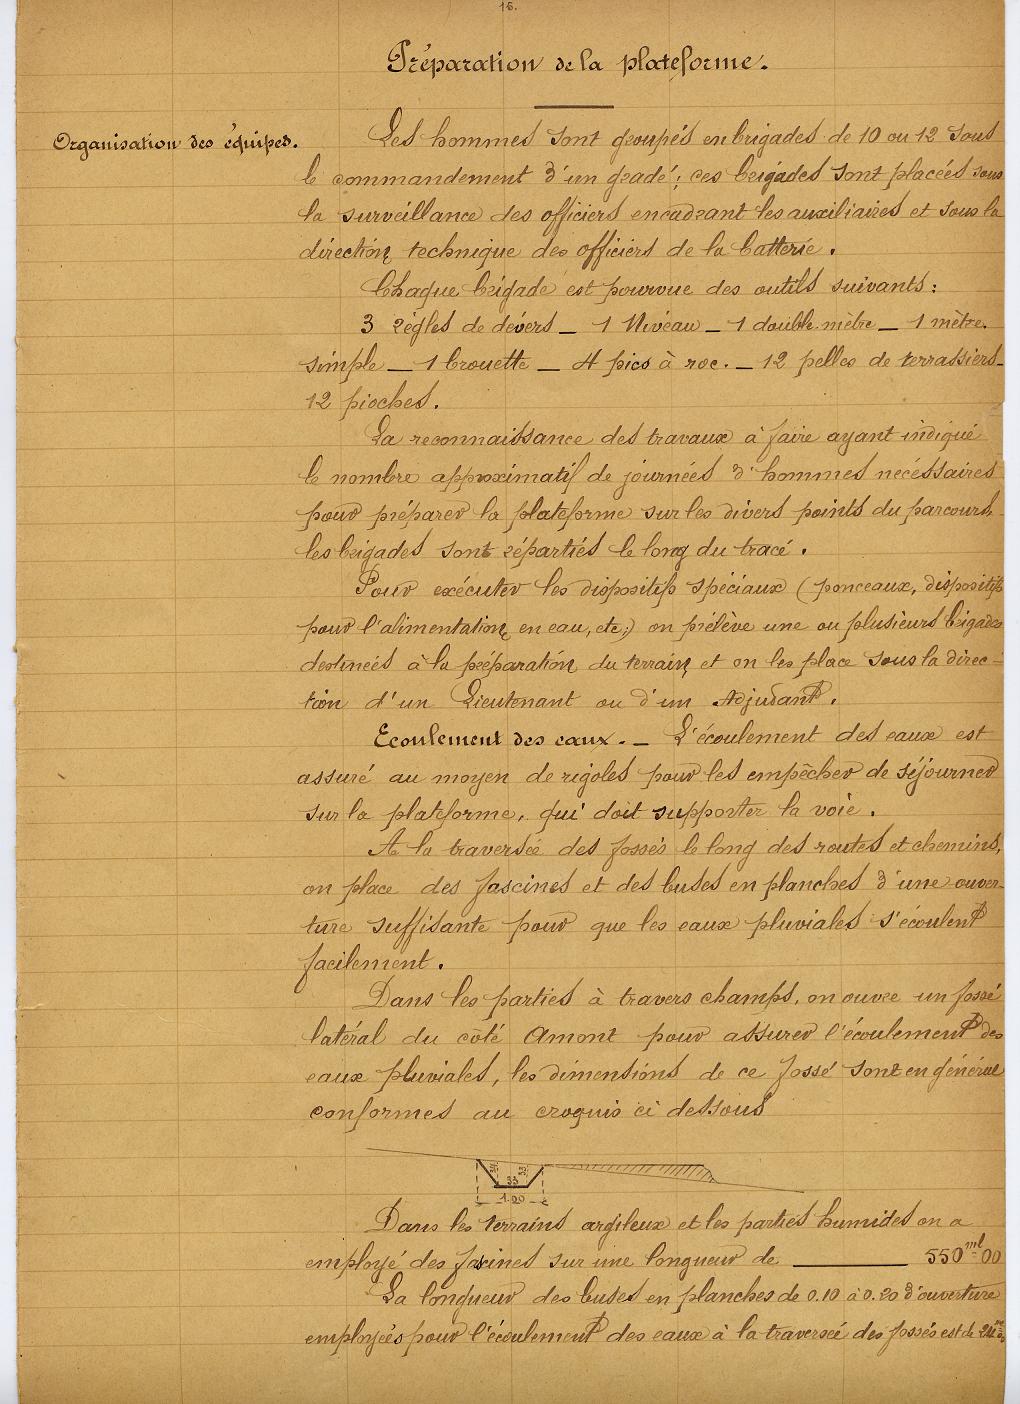 15.
Préparation de la plateforme.
Organisation des équipes.
Les hommes sont groupés en brigades de 10 ou 12 sous
le commandement d'un gradé; ces brigades sont placées sous
la surveillance des officiers encadrant les auxiliaires et sous la
direction technique des officiers de la batterie.
Chaque brigade est pourvue des outils suivants :
3 règles de dévers _ 1 Niveau _ 1 double-mètre _ 1 mètre
simple _ 1 brouette _ 4 pics à roc. _ 12 pelles de terrassiers_
12 pioches.
La reconnaissance des travaux à faire ayant indiqué
le nombre approximatif de journées d'hommes necéssaires
pour préparer la plateforme sur les divers points du parcours,
les brigades sont réparties le long du tracé.
Pour exécuter les dispositifs spéciaux (ponceaux, dispositifs
pour l'alimentation en eau, etc;) on prélève une ou plusieurs brigades
destinées à la préparation du terrain et on les place sous la direc-
tion d'un Lieutenant ou d'un Adjudant.
Ecoulement des eaux. _ L'écoulement des eaux est
assuré au moyen de rigoles pour les empêcher de séjourner
sur la plateforme, qui doit supporter la voie.
A la traversée des fossés le long des routes et chemins,
on place des fascines et des buses en planches d'une ouver-
ture suffisante pour que les eaux pluviales s'écoulent
facilement.
Dans les parties à travers champs, on ouvre un fossé
latéral du côté amont pour assurer l'écoulement des
eaux pluviales, les dimensions de ce fossé sont en général
conformes au croquis ci dessous
33 33
33
1.00
Dans les terrains argileux et les parties humides on a
employé des fascines sur une longueur de ______ 550ml 00
La longueur des buses en planches de 0.10 à 0.20 d'ouverture
employées pour l'écoulement des eaux à la traversée des fossés est de